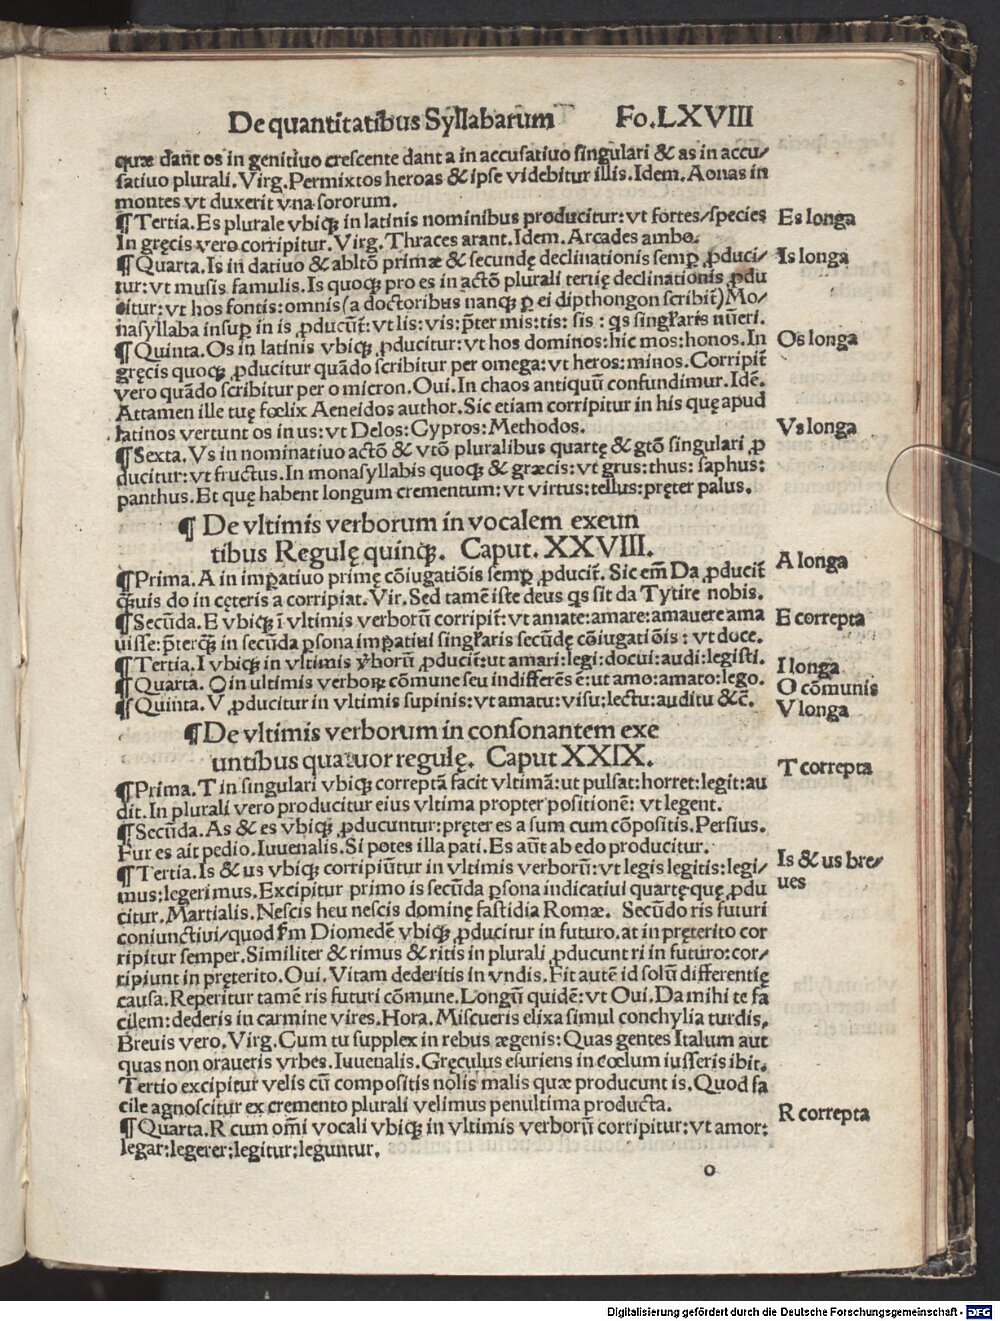 De quantitatibus Syllabarum Fo.LXVIII
quæ dant os in genitiuo crescente dant a in accusatiuo singulari & as in accu/
satiuo plurali. Virg. Permixtos heroas & ipse videbitur illis. Idem. Aonas in
montes vt duxerit vna sororum.
¶ Tertia. Es plurale vbiqꝫ in latinis nominibus producitur: vt fortes/species
Es longa
In gręcis vero corripitur. Virg. Thraces arant. Idem. Arcades ambo.
¶ Quarta. Is in datiuo & abltō primæ & secundę declinationis semꝑ ꝓduci/
Is longa
tur: vt musis famulis. Is quoqꝫ pro es in actō plurali tertię declinationis ꝓdu
citur: vt hos fontis: omnis (a doctoribus nanqꝫ ꝑ ei dipthongon scribit̄) Mo/
nasyllaba insuꝑ in is ꝓducūt̄: vt lis: vis: p̄ter mis: tis: sis : qs singl̄aris nūeri.
¶ Quinta. Os in latinis vbiqꝫ ꝓducitur: vt hos dominos: hic mos: honos. In
Os longa
gręcis quoqꝫ ꝓducitur quādo scribitur per omega: vt heros: minos. Corripit̄
vero quādo scribitur per o micron. Oui. In chaos antiquū confundimur. Idē.
Attamen ille tuę fœlix Aeneidos author. Sic etiam corripitur in his quę apud
latinos vertunt os in us: vt Delos: Cypros: Methodos.
Vs longa
¶ Sexta. Vs in nominatiuo actō & vtō pluralibus quartę & gtō singulari ꝓ
ducitur: vt fructus. In monasyllabis quoqꝫ & græcis: vt grus: thus: saphus:
panthus. Et quę habent longum crementum: vt virtus: tellus: pręter palus.
¶ De vltimis verborum in vocalem exeun
tibus Regulę quinqꝫ. Caput. XXVIII.
¶ Prima. A in imꝑatiuo primę cōiugatiōis semꝑ ꝓducit̄. Sic em̄ Da ꝓducit̄
A longa
qꝫuis do in cęteris a corripiat. Vir. Sed tamē iste deus qs sit da Tytire nobis.
¶ Secūda. E vbiqꝫ ī vltimis verborū corripit̄: vt amate: amare: amauere ama
E correpta
uisse: p̄terqꝫ in secūda ꝑsona imꝑatiui singl̄aris secūdę cōiugatiōis : vt doce.
¶ Tertia. I vbiqꝫ in vltimis v̄borū ꝓducit̄: ut amari: legi: docui: audi: legisti.
I longa
¶ Quarta. O in ultimis verboꝝ cōmune seu indifferēs ē: ut amo: amato: lego.
O cōmunis
¶ Quinta. V ꝓducitur in vltimis supinis: vt amatu: visu: lectu: auditu &c̄.
V longa
¶ De vltimis verborum in consonantem exe
untibus quatuor regulę. Caput XXIX.
¶ Prima. T in singulari vbiqꝫ correptā facit vltimā: ut pulsat: horret: legit: au
T correpta
dit. In plurali vero producitur eius vltima propter positionē: vt legent.
¶ Secūda. As & es vbiqꝫ ꝓducuntur: pręter es a sum cum cōpositis. Persius.
Fur es ait pedio. Iuuenalis. Si potes illa pati. Es aūt ab edo producitur.
¶ Tertia. Is & us vbiqꝫ corripiūtur in vltimis verborū: vt legis legitis: legi/
Is & us bre/
ues
mus: legerimus. Excipitur primo is secūda ꝑsona indicatiui quartę que ꝓdu
citur. Martialis. Nescis heu nescis dominę fastidia Romæ. Secūdo ris futuri
coniunctiui/quod sm̄ Diomedē vbiqꝫ ꝓducitur in futuro. at in pręterito cor
ripitur semper. Similiter & rimus & ritis in plurali ꝓducunt ri in futuro: cor/
ripiunt in pręterito. Oui. Vitam dederitis in vndis. Fit autē id solū differentię
causa. Reperitur tamē ris futuri cōmune. Longū quidē: vt Oui. Da mihi te fa
cilem: dederis in carmine vires. Hora. Miscueris elixa simul conchylia turdis.
Breuis vero. Virg. Cum tu supplex in rebus ægenis: Quas gentes Italum aut
quas non oraueris vrbes. Iuuenalis. Gręculus esuriens in cœlum iusseris ibit.
Tertio excipitur velis cū compositis nolis malis quæ producunt is. Quod fa
cile agnoscitur ex cremento plurali velimus penultima producta.
¶ Quarta. R cum om̄i vocali vbiqꝫ in vltimis verborū corripitur: vt amor:
R correpta
legar: legerer: legitur: leguntur.
o
Digitalisierung gefördert durch die Deutsche Forschungsgemeinschaft - DFG